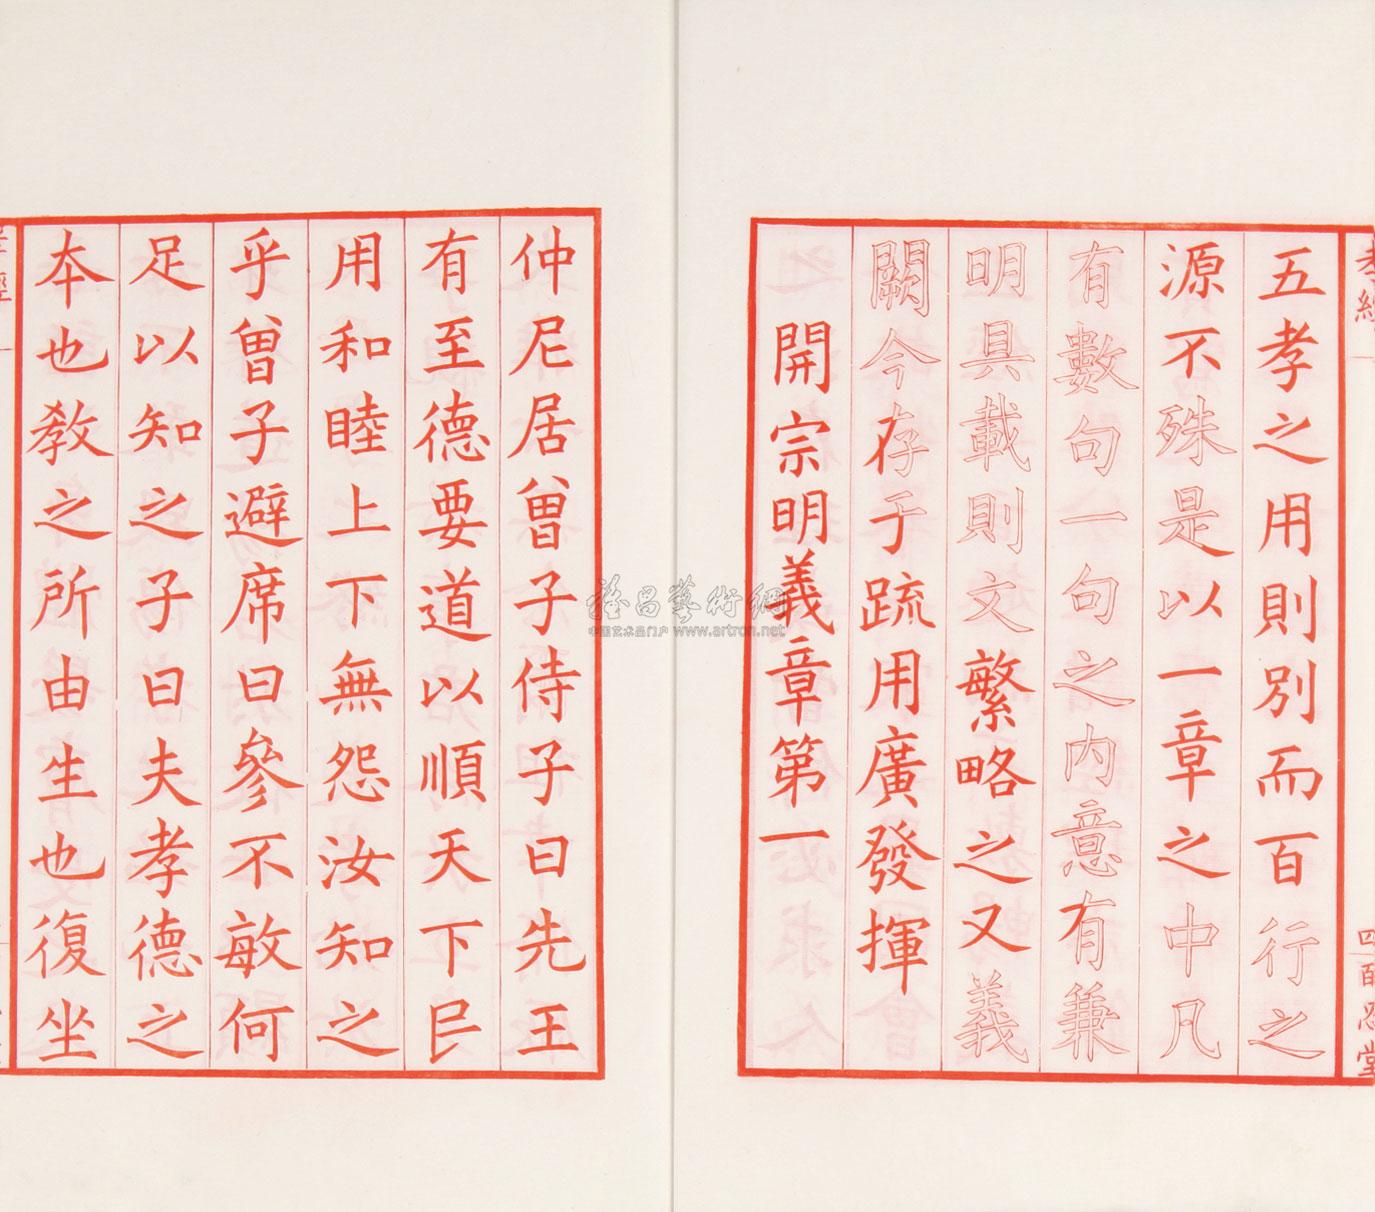 五孝之用則別而百行之
源不殊是以一章之中凡
有數句一句之内意有兼
明具載則文繁略之又義
闕今存于疏用廣發揮
開宗明義章第一
仲尼居曾子侍子曰先王
有至德要道以順天下民
用和睦上下無怨汝知之
乎曾子避席曰參不敏何
足以知之子曰夫孝德之
本也教之所由生也復坐
孝經
四 百忍堂
雅昌藝術網
中国艺术品门户 www.artron.net